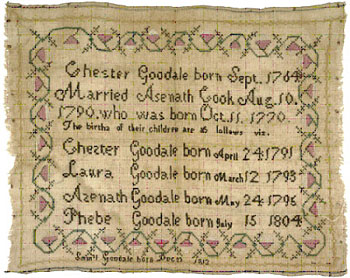 Chester Goodale born Sept. 1764
Married Asenath Cook Aug. 10.
1790. who was born Oct. 11. 1770.
The births of their children are as follows viz.
Chester Goodale born April 24 1791
Laura Goodale born March 12 1793
Azenath Goodale born May 24 1796
Phebe Goodale born July 15 1804
Goodale born 1812